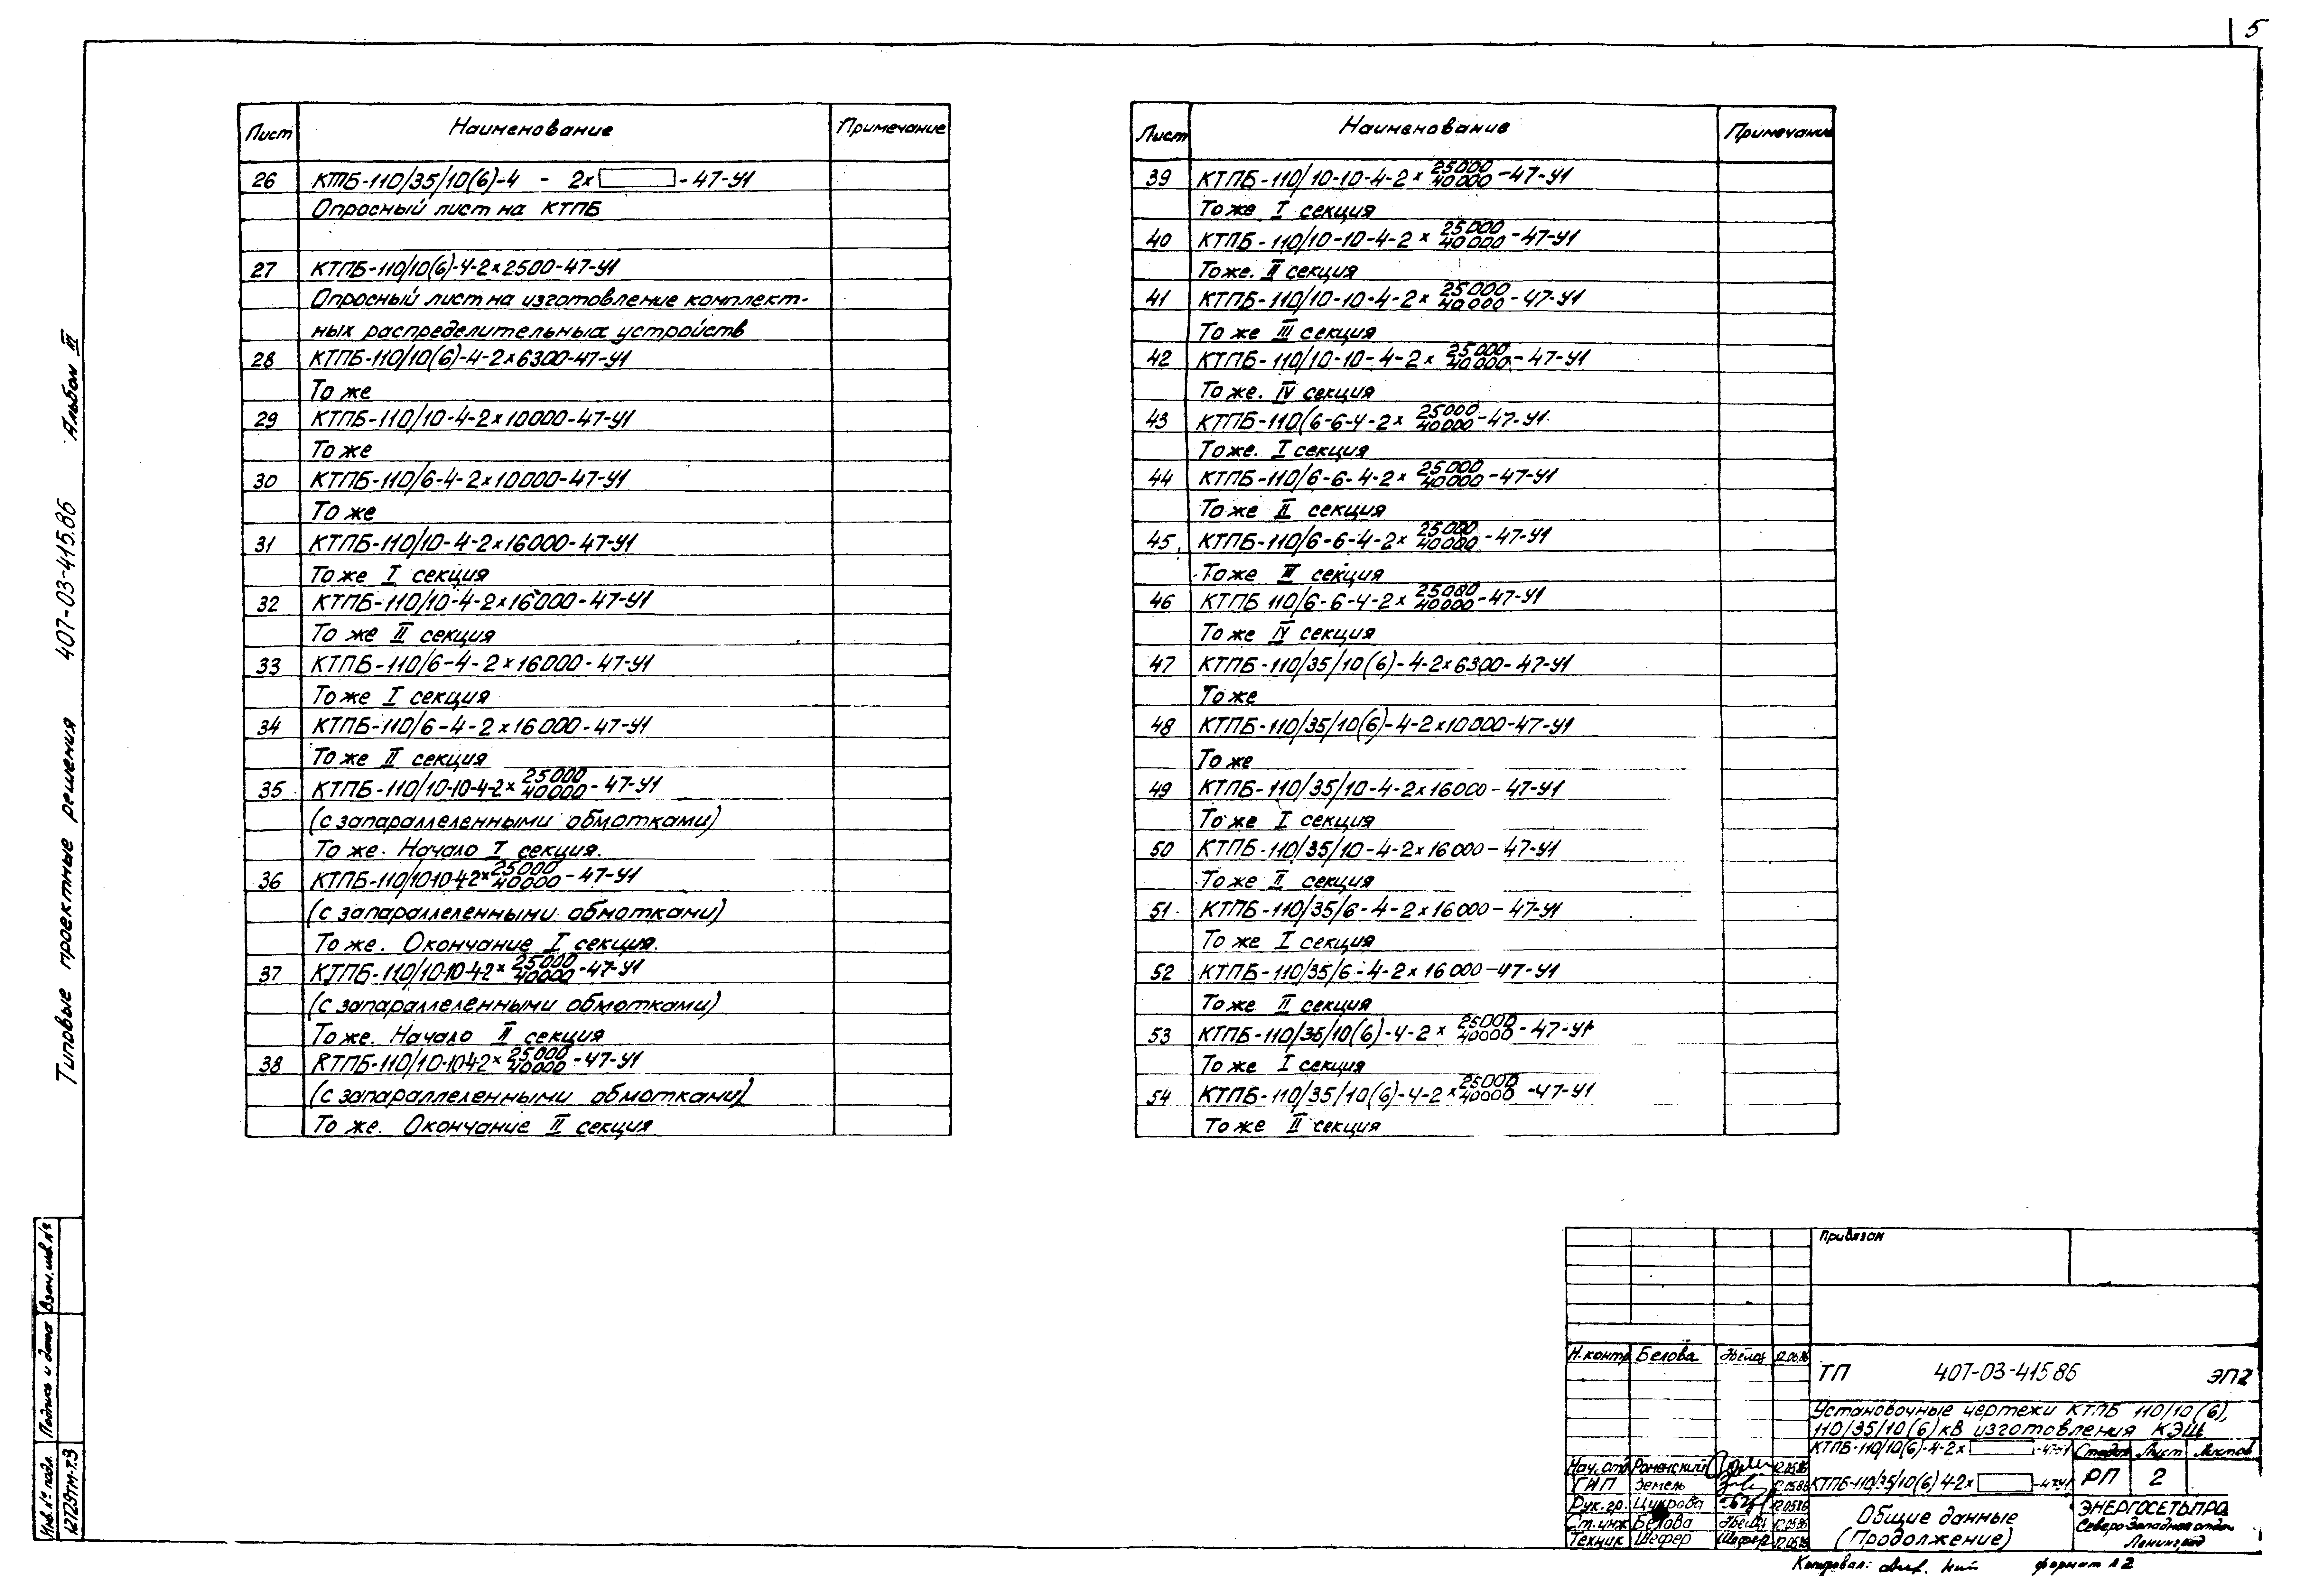 5
Лист Наименование Примечание
26 КТПБ-110/35/10(6)-4 - 2х -47-У1
Опросный лист на КТПБ
27 КТПБ-110/10(6)-4-2х2500-47-У1
Опросный лист на изготовление комплект-
ных распределительных устройств
28 КТПБ-110/10(6)-4-2х6300-47-У1
То же
29 КТПБ-110/10-4-2х10000-47-У1
То же
30 КТПБ-110/6-4-2х10000-47-У1
То же
31 КТПБ-110/10-4-2х16000-47-У1
То же I секция
32 КТПБ-110/10-4-2х16000-47-У1
То же II секция
33 КТПБ-110/6-4-2х16000-47-У1
То же I секция
34 КТПБ-110/6-4-2х16000-47-У1
То же II секция
35 КТПБ-110/10-10-4-2х 25000/40000 -47-У1
(с запараллеленными обмотками)
То же. Начало I секция.
36 КТПБ-110/10-10-4-2х 25000/40000 -47-У1
(с запараллеленными обмотками)
То же. Окончание I секция.
37 КТПБ-110/10-10-4-2х 25000/40000 -47-У1
(с запараллеленными обмотками)
То же. Начало II секция
38 КТПБ-110/10-10-4-2х 25000/40000 -47-У1
(с запараллеленными обмотками)
То же. Окончание II секция
Лист Наименование Примечание
39 КТПБ-110/10-10-4-2х 25000/40000 -47-У1
То же I секция
40 КТПБ-110/10-10-4-2х 25000/40000 -47-У1
То же. II секция
41 КТПБ-110/10-10-4-2х 25000/40000 -47-У1
То же III секция
42 КТПБ-110/10-10-4-2х 25000/40000 -47-У1
То же. IV секция
43 КТПБ-110(6-6-4-2х 25000/40000 -47-У1
То же. I секция
44 КТПБ-110/6-6-4-2х 25000/40000 -47-У1
То же II секция
45 КТПБ-110/6-6-4-2х 25000/40000 -47-У1
То же III секция
46 КТПБ 110/6-6-4-2х 25000/40000 -47-У1
То же IV секция
47 КТПБ-110/35/10(6)-4-2х6300-47-У1
То же
48 КТПБ-110/35/10(6)-4-2х10000-47-У1
То же
49 КТПБ-110/35/10-4-2х16000-47-У1
То же I секция
50 КТПБ-110/35/10-4-2х16000-47-У1
То же II секция
51 КТПБ-110/35/6-4-2х16000-47-У1
То же I секция
52 КТПБ-110/35/6-4-2х16000-47-У1
То же II секция
53 КТПБ-110/35/10(6)-4-2х 25000/40000 -47-У1
То же I секция
54 КТПБ-110/35/10(6)-4-2х 25000/40000 -47-У1
То же II секция
Типовые проектные решения 407-03-415.86 Альбом III
Инв.№ подл. Подпись и дата Взам.инв.№
12129тм-т.3
Привязан
Н.контр Белова 12.05.86
ТП 407-03-415.86 ЭП2
Установочные чертежи КТПБ 110/10(6),
110/35/10(6)кВ изготовления КЭЩ
КТПБ-110/10(6)-4-2х -47-У1 Стадия Лист Листов
Нач.отд Роменский 12.05.86
ГИП Земель 12.05.86 КТПБ-110/35/10(6) 4-2х -47-У1 РП 2
Рук.гр. Цукрова 12.05.86
Ст.инж Белова 12.05.86
Техник Шефер 12.05.86
Общие данные
(Продолжение)
ЭНЕРГОСЕТЬПРО
Северо-Западное отдел
Ленинград
Копировал: формат А2